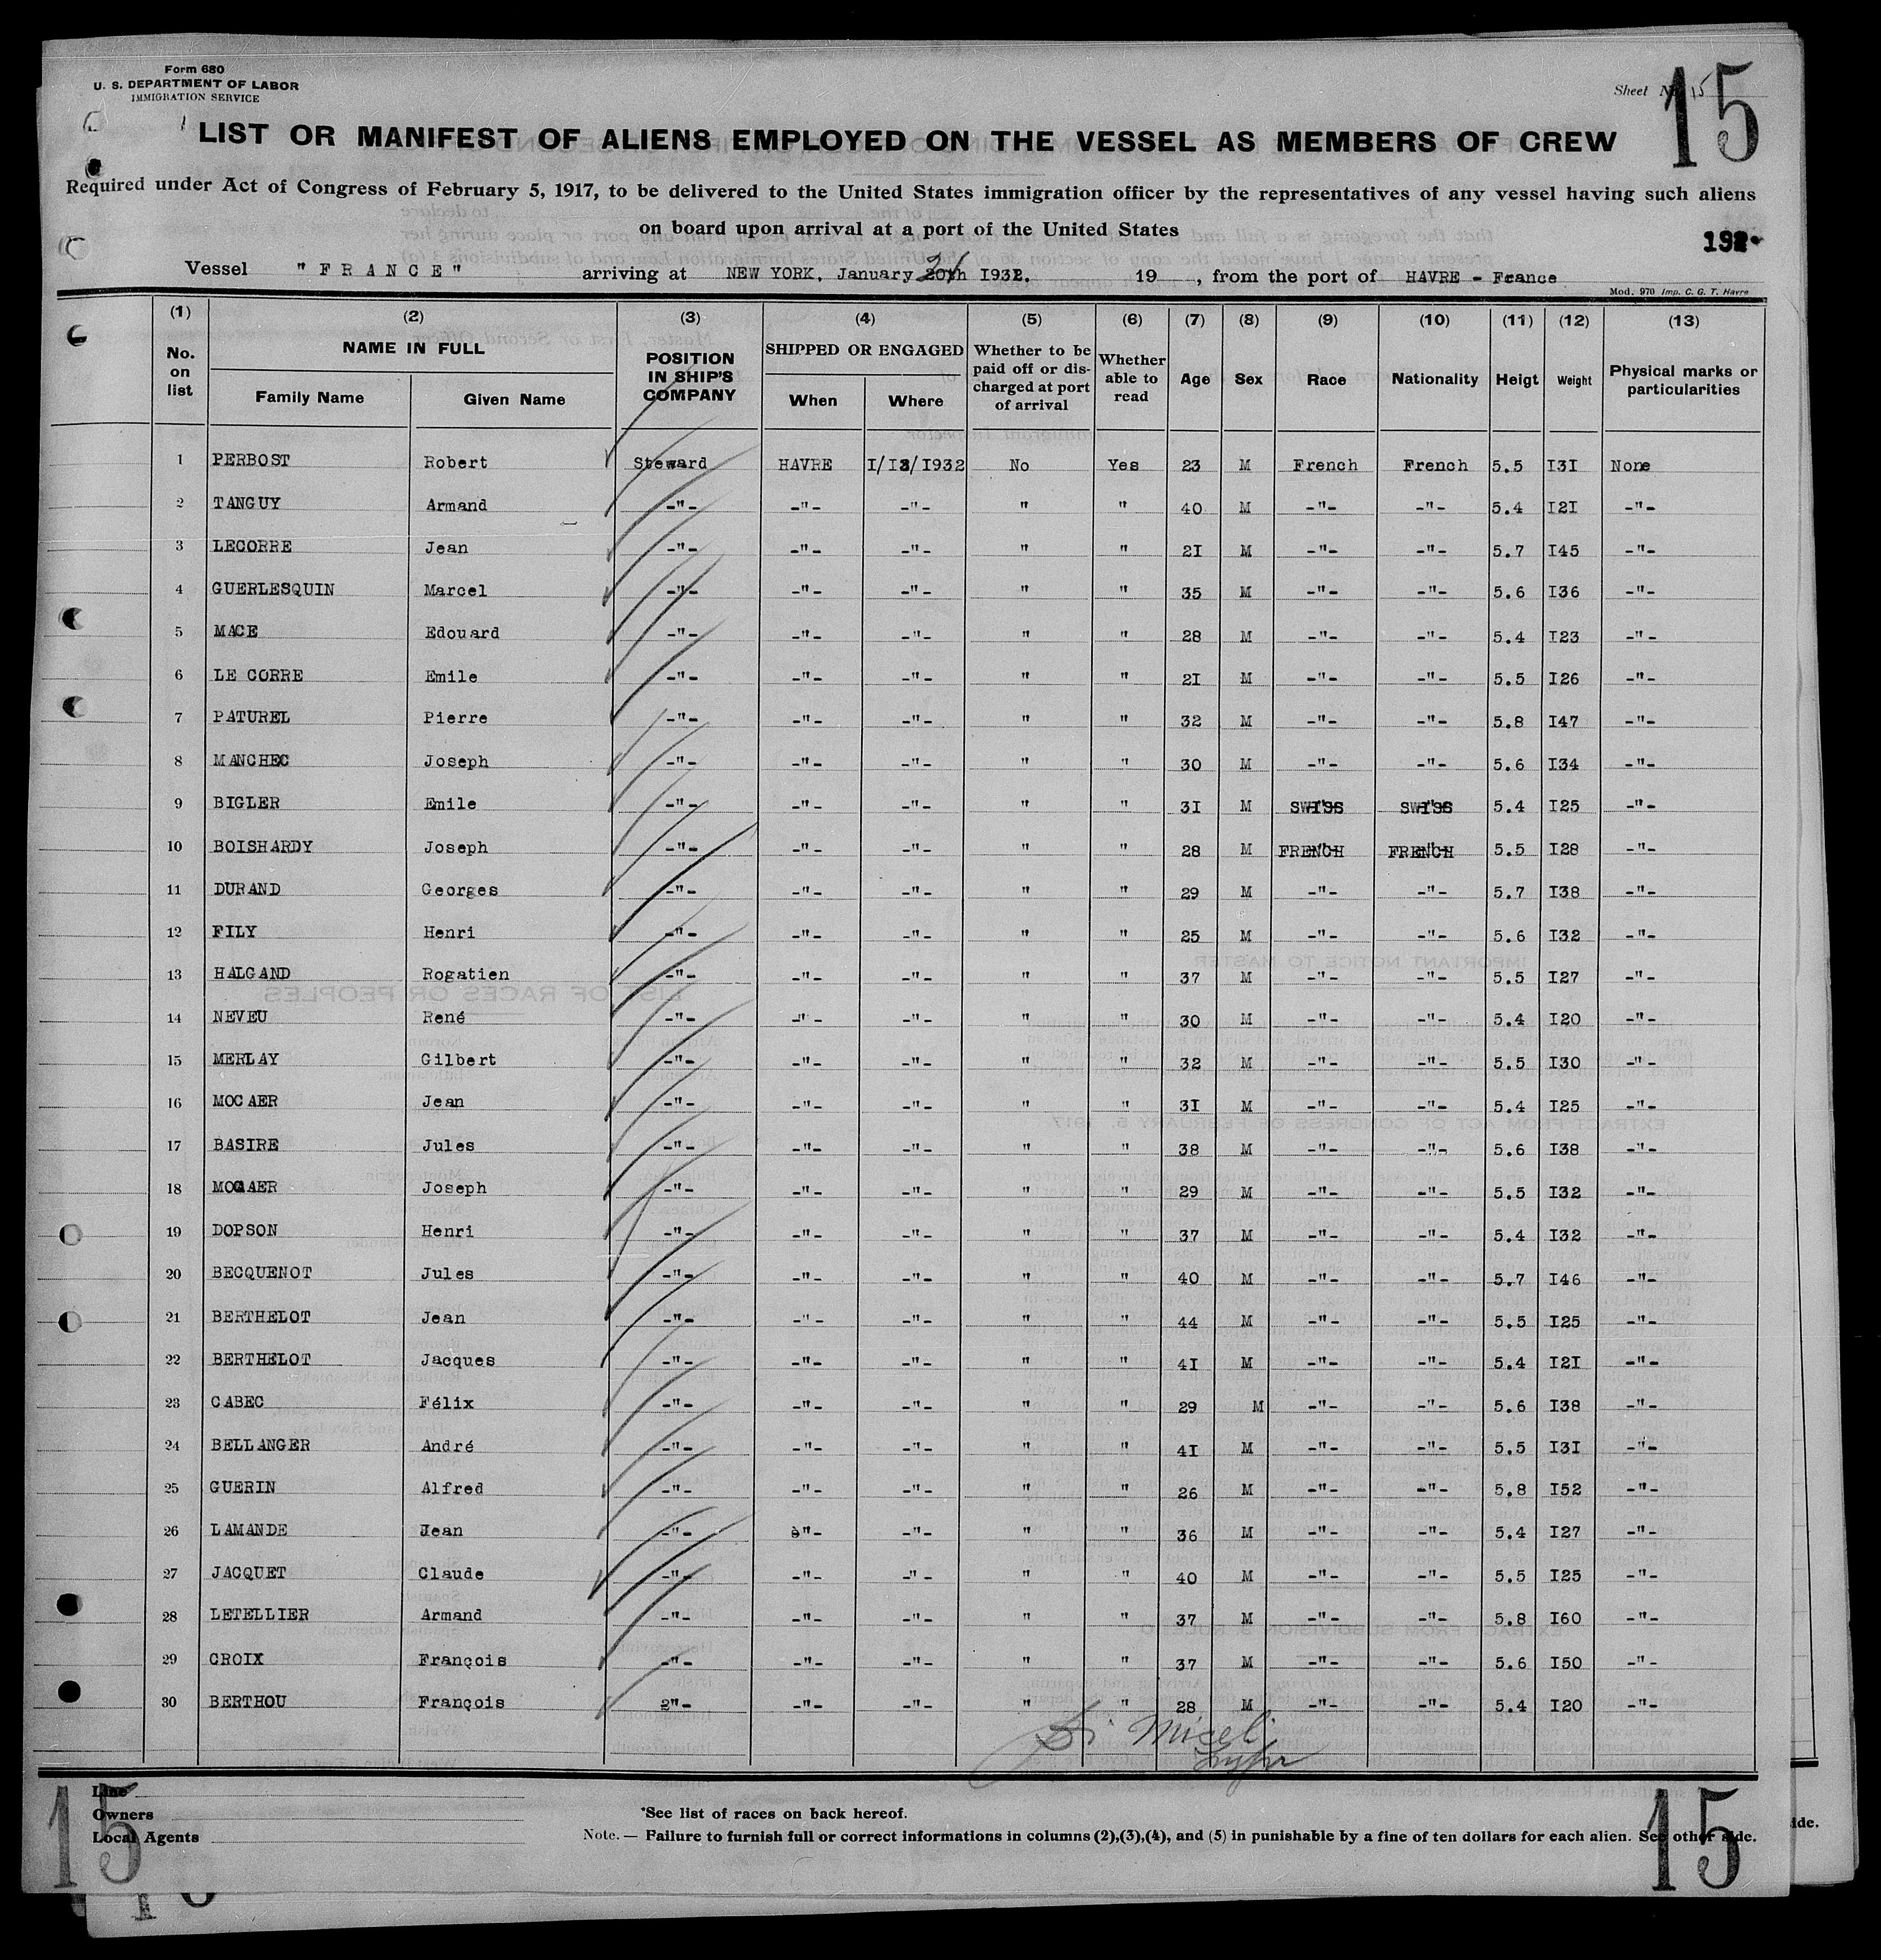 Form 680
U. S. DEPARTMENT OF LABOR
IMMIGRATION SERVICE
Sheet No 15
15
LIST OR MANIFEST OF ALIENS EMPLOYED ON THE VESSEL AS MEMBERS OF CREW
Required under Act of Congress of February 5, 1917, to be delivered to the United States immigration officer by the representatives of any vessel having such aliens
on board upon arrival at a port of the United States
Vessel "FRANCE" arriving at NEW YORK, January 20th I932, 19 , from the port of HAVRE - France
Mod. 970 Imp. C. G. T. Havre
(1) (2) (3) (4) (5) (6) (7) (8) (9) (10) (11) (12) (13)
No. on list NAME IN FULL Family Name Given Name POSITION IN SHIP'S COMPANY SHIPPED OR ENGAGED When Where Whether to be paid off or discharged at port of arrival Whether able to read Age Sex Race Nationality Heigt Weight Physical marks or particularities
1 PERBOST Robert Steward HAVRE I/I8/I932 No Yes 23 M French French 5.5 I3I None
2 TANGUY Armand -"- -"- -"- " " 40 M -"- -"- 5.4 I2I -"-
3 LECORRE Jean -"- -"- -"- " " 2I M -"- -"- 5.7 I45 -"-
4 GUERLESQUIN Marcel -"- -"- -"- " " 35 M -"- -"- 5.6 I36 -"-
5 MACE Edouard -"- -"- -"- " " 28 M -"- -"- 5.4 I23 -"-
6 LE CORRE Emile -"- -"- -"- " " 2I M -"- -"- 5.5 I26 -"-
7 PATUREL Pierre -"- -"- -"- " " 32 M -"- -"- 5.8 I47 -"-
8 MANCHEC Joseph -"- -"- -"- " " 30 M -"- -"- 5.6 I34 -"-
9 BIGLER Emile -"- -"- -"- " " 3I M SWISS SWISS 5.4 I25 -"-
10 BOISHARDY Joseph -"- -"- -"- " " 28 M FRENCH FRENCH 5.5 I28 -"-
11 DURAND Georges -"- -"- -"- " " 29 M -"- -"- 5.7 I38 -"-
12 FILY Henri -"- -"- -"- " " 25 M -"- -"- 5.6 I32 -"-
13 HALGAND Rogatien -"- -"- -"- " " 37 M -"- -"- 5.5 I27 -"-
14 NEVEU René -"- -"- -"- " " 30 M -"- -"- 5.4 I20 -"-
15 MERLAY Gilbert -"- -"- -"- " " 32 M -"- -"- 5.5 I30 -"-
16 MOCAER Jean -"- -"- -"- " " 3I M -"- -"- 5.4 I25 -"-
17 BASIRE Jules -"- -"- -"- " " 38 M -"- -"- 5.6 I38 -"-
18 MOCAER Joseph -"- -"- -"- " " 29 M -"- -"- 5.5 I32 -"-
19 DOPSON Henri -"- -"- -"- " " 37 M -"- -"- 5.4 I32 -"-
20 BECQUENOT Jules -"- -"- -"- " " 40 M -"- -"- 5.7 I46 -"-
21 BERTHELOT Jean -"- -"- -"- " " 44 M -"- -"- 5.5 I25 -"-
22 BERTHELOT Jacques -"- -"- -"- " " 4I M -"- -"- 5.4 I2I -"-
23 CABEC Félix -"- -"- -"- " " 29 M -"- -"- 5.6 I38 -"-
24 BELLANGER André -"- -"- -"- " " 4I M -"- -"- 5.5 I3I -"-
25 GUERIN Alfred -"- -"- -"- " " 26 M -"- -"- 5.8 I52 -"-
26 LAMANDE Jean -"- è"- -"- " " 36 M -"- -"- 5.4 I27 -"-
27 JACQUET Claude -"- -"- -"- " " 40 M -"- -"- 5.5 I25 -"-
28 LETELLIER Armand -"- -"- -"- " " 37 M -"- -"- 5.8 I60 -"-
29 CROIX François -"- -"- -"- " " 37 M -"- -"- 5.6 I50 -"-
30 BERTHOU François 2"- -"- -"- " " 28 M -"- -"- 5.4 I20 -"-
Di Miceli
Line
Owners
Local Agents
*See list of races on back hereof.
Note. — Failure to furnish full or correct informations in columns (2),(3),(4), and (5) in punishable by a fine of ten dollars for each alien. See other side.
ide.
15
15